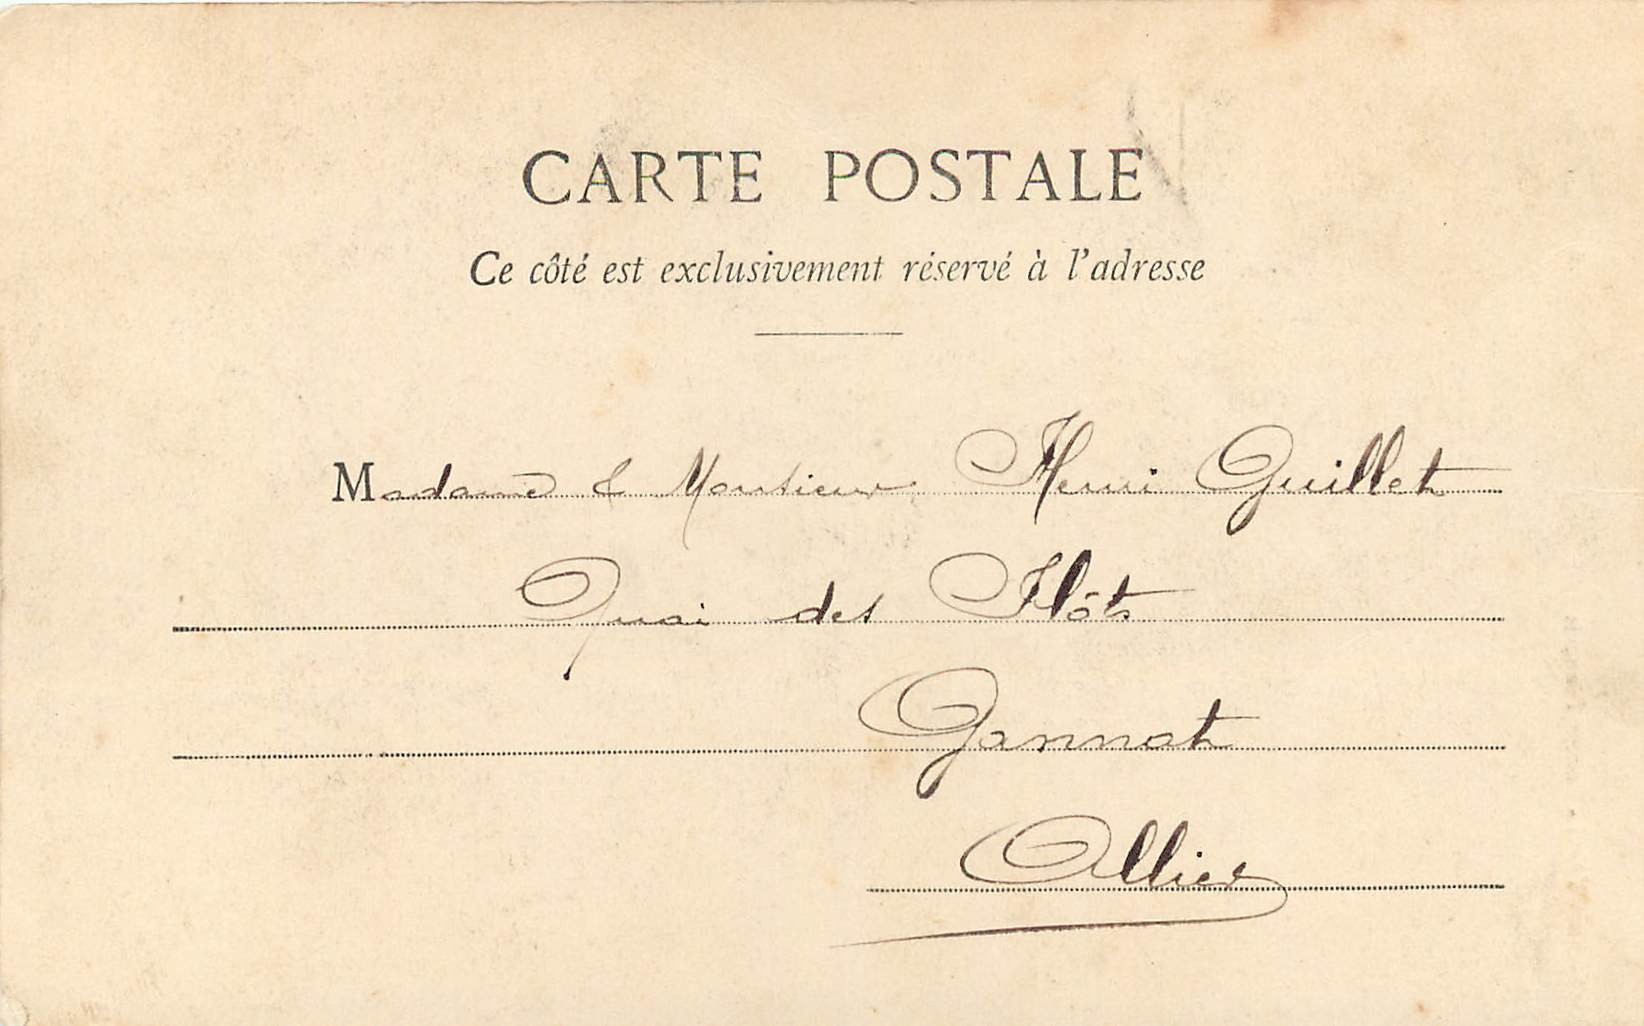 CARTE POSTALE
Ce côté est exclusivement réservé à l'adresse
Madame & Monsieur Henri Guillet
Quai des Flôts
Gannat
Allier